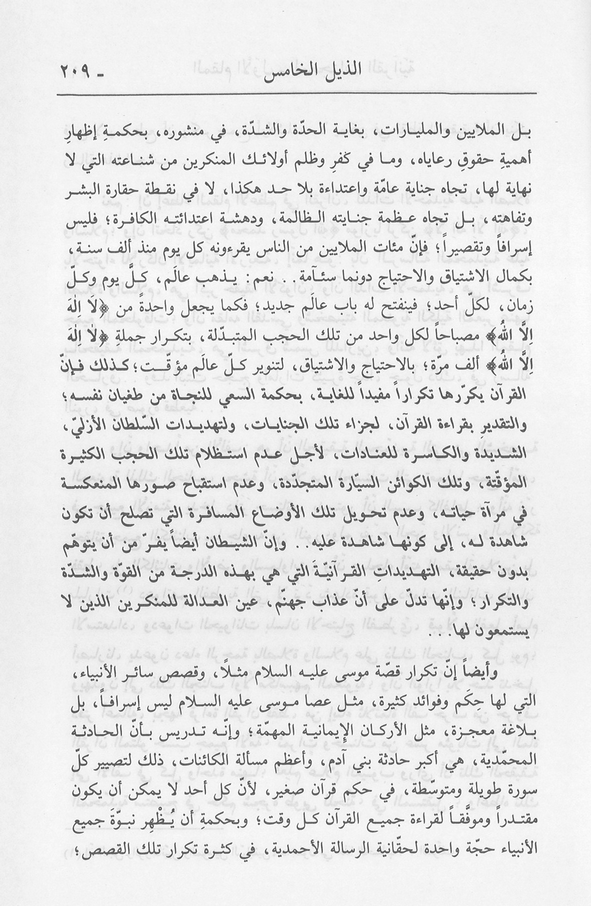 الذيل الخامس ـ ٢٠٩
بـل الملايين والمليـارات، بغايـة الحدّة والشـدّة، في منشوره، بحكمـةِ إظهارِ
أهميةِ حقوقِ رعاياه، ومـا في كُفرِ وظلم أولائـك المنكرين من شناعته التي لا
نهاية لها، تجاه جناية عامّة واعتداءة بلا حد هكذا، لا في نقطة حقارة البشر
وتفاهته، بـل تجاه عظمة جنايته الظالمة، ودهشة اعتدائتـه الكافرة؛ فليس
إسرافاً وتقصيراً؛ فإنّ مئات الملايين من الناس يقرءونه كل يوم منذ ألف سنة،
بكمال الاشتياق والاحتياج دونما سئآمة.. نعم: يـذهب عالَم، كـلَّ يوم وكـلّ
زمان، لكلّ أحد؛ فينفتح له باب عالَم جديد؛ فكما يجعل واحدةً من ﴿لَا إِلٰهَ
إِلَّا اللهُ﴾ مصباحاً لكل واحد من تلك الحجب المتبدّلة، بتكرار جملةِ ﴿لَا إِلٰهَ
إِلَّا اللهُ﴾ ألف مرّة؛ بالاحتياج والاشتياق، لتنوير كـلّ عالَم مؤقّـت؛ كـذلك فـإنّ
القرآن يكرّرها تكراراً مفيداً للغاية، بحكمة السعي للنجاة من طغيان نفسه؛
والتقدير بقراءة القرآن، لجزاء تلك الجنايـات، ولتهديـدات السّلطان الأزليّ،
الشديدة والكاسرة للعنادات، لأجـل عـدم استـظلام تلـك الحجب الكثيرة
المؤقّتة، وتلك الكوائن السيّارة المتجدّدة، وعدم استقباح صورها المنعكسة
في مرآة حياته، وعدم تحويل تلك الأوضاع المسافرة التي تصلح أن تكون
شاهدة لـه، إلى كونها شاهدة عليه.. وإنّ الشيطان أيضاً يفـرّ من أن يتوهّم
بدون حقيقة، التهديدات القرآنيّةَ التي هي بهـذه الدرجـة من القوّة والشدّة
والتكرار؛ وإنّها تدلّ على أنّ عذاب جهنّم، عين العدالة للمنكرين الذين لا
يستمعون لها...
وأيضاً إنّ تكرار قصّة موسى عليـه السلام مثـلًا، وقصص سائـر الأنبياء،
التي لها حِكَم وفوائد كثيرة، مثـل عصا مـوسى عليه السلام ليس إسرافـاً، بل
بـلاغة معجـزة، مثل الأركـان الإيمانيـة المهمّة؛ وإنّـه تـدريس بـأنّ الحادثـة
المحمّدية، هي أكبر حادثة بني آدم، وأعظم مسألة الكائنات، ذلك لتصيير كلّ
سورة طويلة ومتوسّطة، في حكم قرآن صغير، لأنّ كل أحد لا يمكن أن يكون
مقتـدراً وموفَّقـاً لقراءة جميـع القرآن كـل وقت؛ وبحكمةِ أن يُـظْهِر نبـوّةَ جميع
الأنبياء حجّة واحدة لحقّانية الرسالة الأحمدية، في كثرة تكرار تلك القصص؛